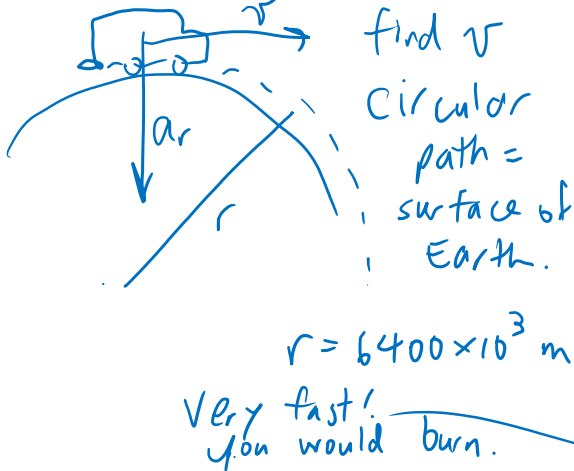 v
find v
Circular
path =
surface of
Earth.
a_r
r
r = 6400 × 10³ m
Very fast!
you would burn.